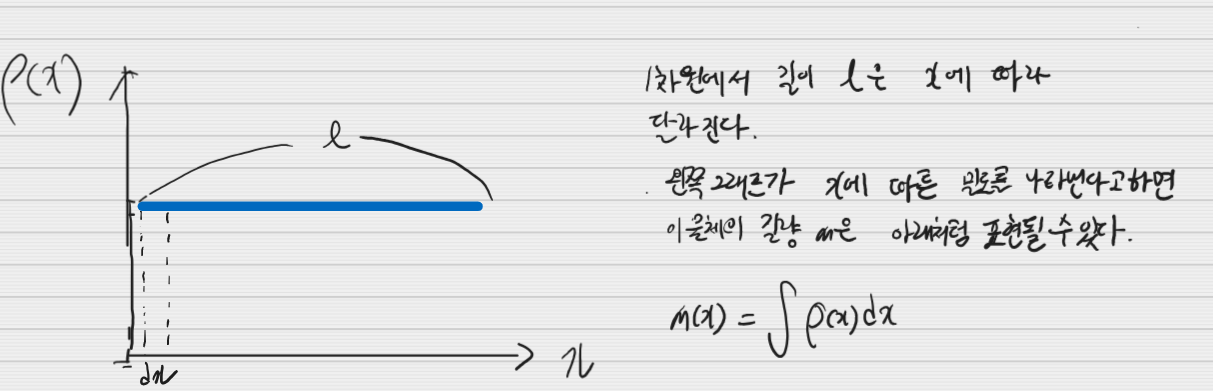 ρ(x)
l
dx
x
1차원에서 길이 l은 x에 따라
달라진다.
왼쪽 그래프가 x에 따른 밀도를 나타낸다고하면
이 물체의 질량 m은 아래처럼 표현될 수 있다.
m(x) = ∫ρ(x)dx